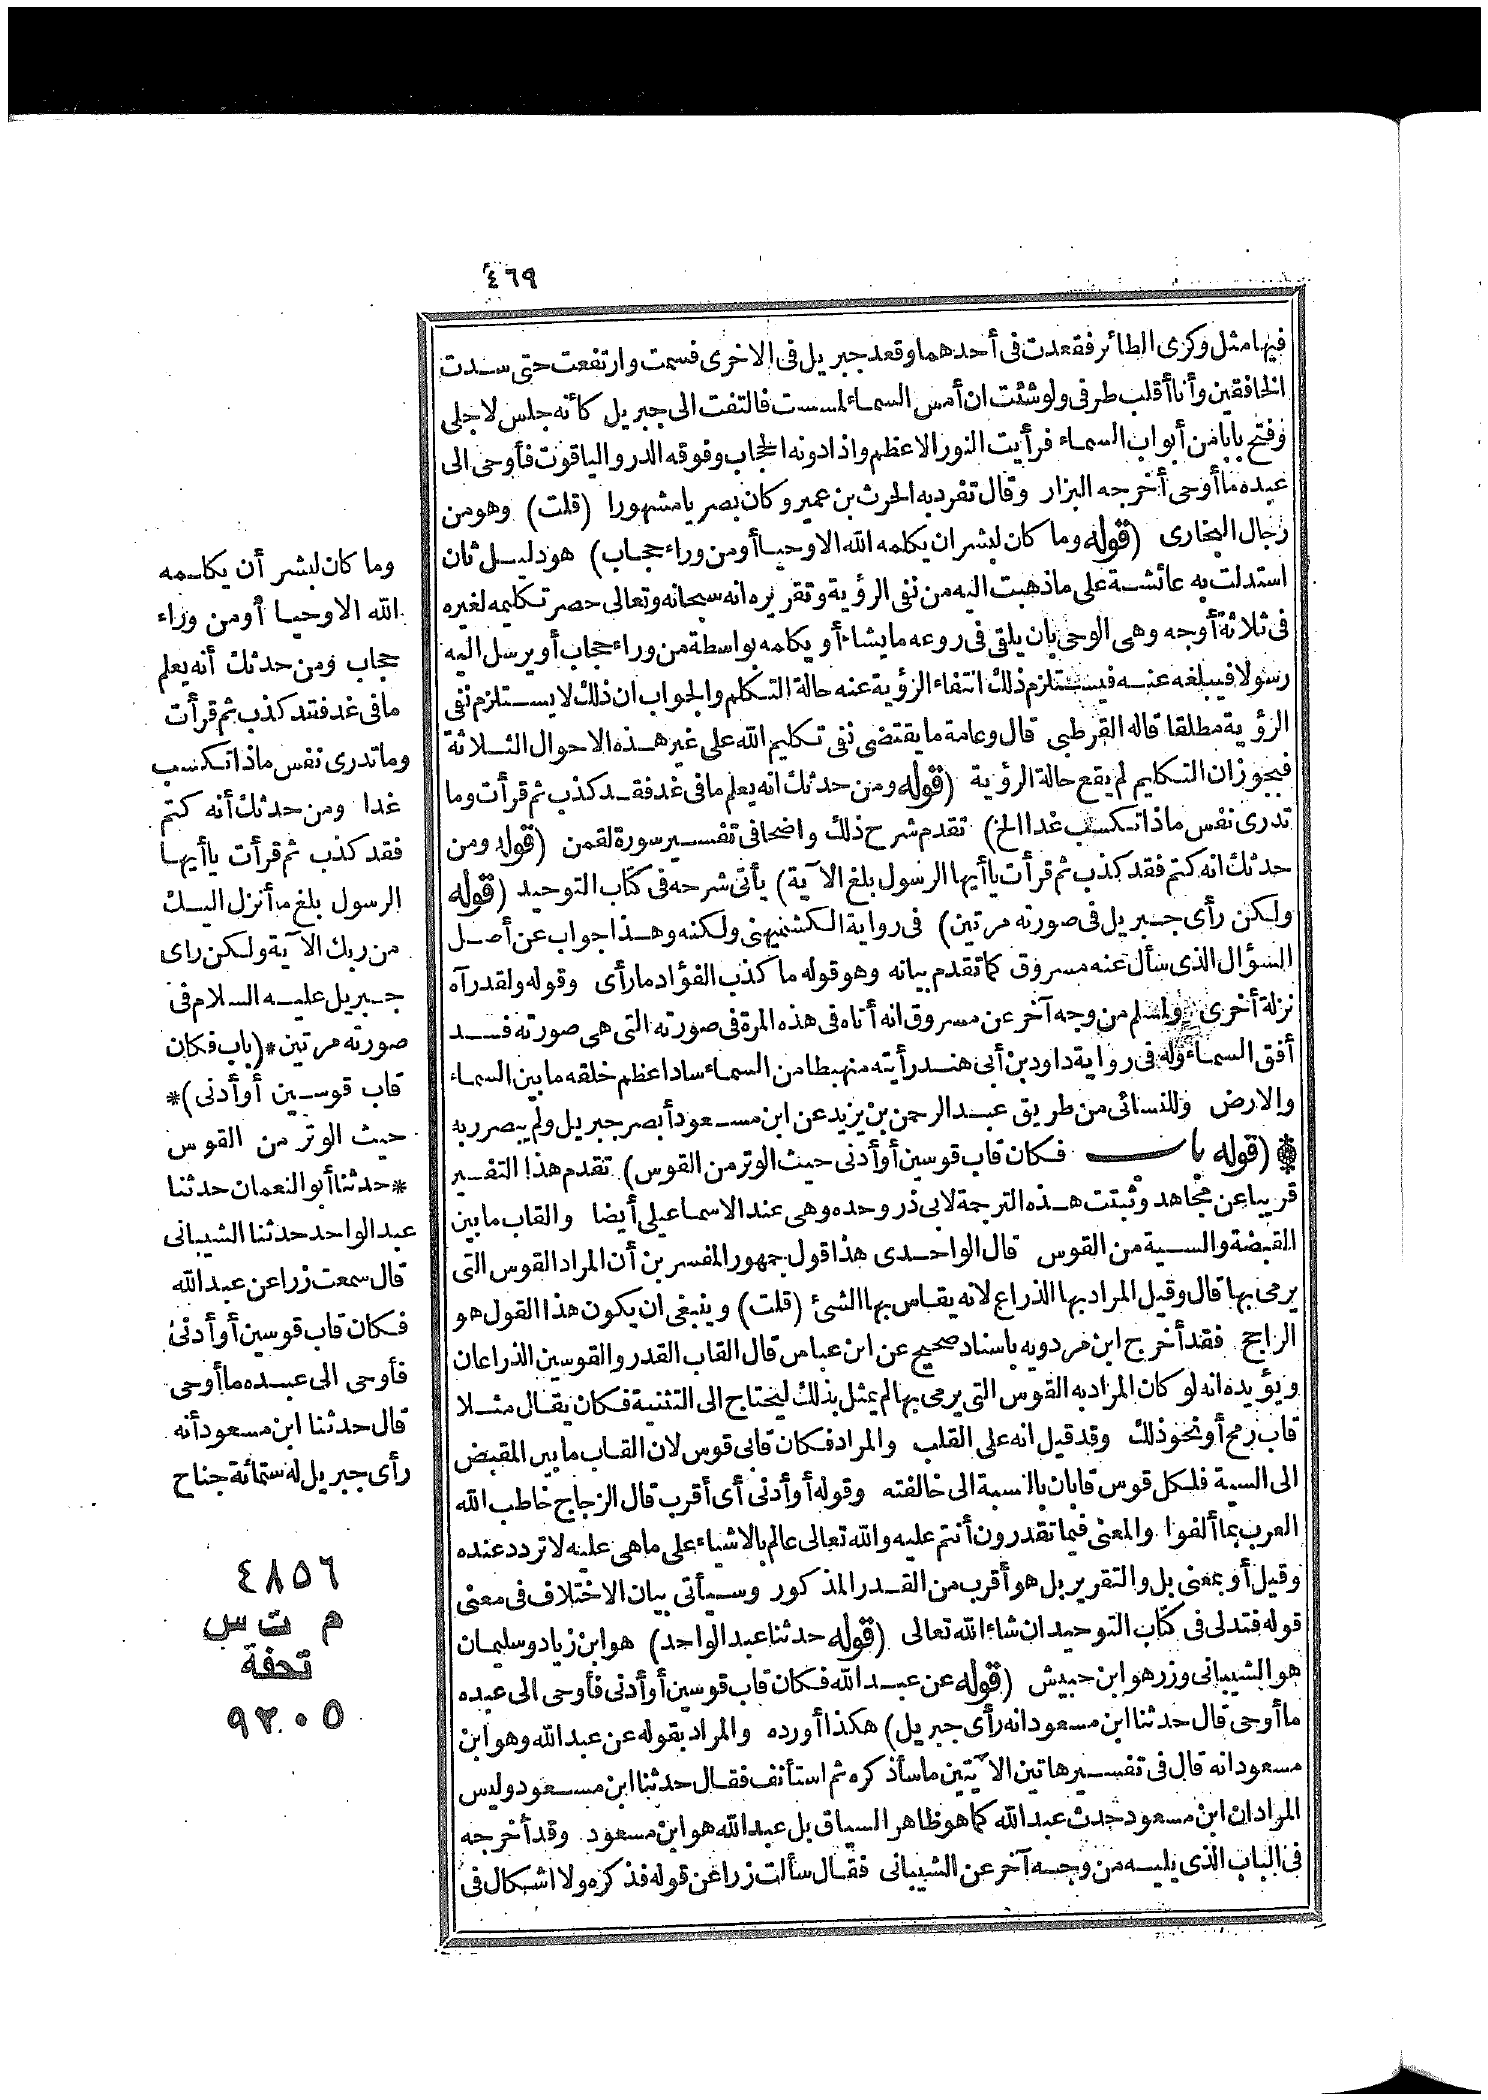 ٤٦٩
فيها مثل وكرى الطائر فقعدت فى أحدهما وقعد جبريل فى الاخرى فسمت وارتفعت حتى سدت
الخافقين وأنا أقلب طرفى ولو شئت ان أمس السماء لمسست فالتفت الى جبريل كأنه حلس لاجلى
وفتح بابا من أبواب السماء فرأيت النور الاعظم واذا دونه الحجاب وفوقه الدر والياقوت فأوحى الى
عبده ما أوحى أخرجه البزار وقال تفرد به الحرث بن عمير وكان بصريا مشهورا (قلت) وهو من
رجال البخارى (قوله وما كان لبشر ان يكلمه الله الا وحيا أو من وراء حجاب) هو دليل ثان
استدلت به عائشة على ما ذهبت اليه من نفى الرؤية وتقريره انه سبحانه وتعالى حصر تكليمه لغيره
فى ثلاثة أوجه وهى الوحى بان يلقى فى روعه ما يشاء أو يكلمه بواسطة من وراء حجاب أو يرسل اليه
رسولا فيبلغه عنه فيستلزم ذلك انتفاء الرؤية عنه حالة التكلم والجواب ان ذلك لا يستلزم نفى
الرؤية مطلقا قاله القرطبى قال وعامة ما يقتضى نفى تكليم الله على غير هذه الاحوال الثلاثة
فيجوز ان التكليم لم يقع حالة الرؤية (قوله ومن حدثك انه يعلم ما فى غد فقد كذب ثم قرأت وما
تدرى نفس ماذا تكسب غدا الخ) تقدم شرح ذلك واضحا فى تفسير سورة لقمن (قوله ومن
حدثك انه كتم فقد كذب ثم قرأت يا أيها الرسول بلغ الآية) يأتى شرحه فى كتاب التوحيد (قوله
ولكن رأى جبريل فى صورته مرتين) فى رواية الكشميهنى ولكنه وهذا جواب عن أصل
السؤال الذى سأل عنه مسروق كما تقدم بيانه وهو قوله ما كذب الفؤاد ما رأى وقوله ولقد رآه
نزلة أخرى ولمسلم من وجه آخر عن مسروق انه أتاه فى هذه المرة فى صورته التى هى صورته فسد
أفق السماء وله فى رواية داود بن أبى هند رأيته منهبطا من السماء سادا عظم خلقه ما بين السماء
والارض وللنسائى من طريق عبد الرحمن بن يزيد عن ابن مسعود أبصر جبريل ولم يبصر ربه
(قوله باب فكان قاب قوسين أو أدنى حيث الوتر من القوس) تقدم هذا التفسير
قريبا عن مجاهد وثبتت هذه الترجمة لابى ذر وحده وهى عند الاسماعيلى أيضا والقاب ما بين
القبضة والسية من القوس قال الواحدى هذا قول جمهور المفسرين أن المراد القوس التى
يرمى بها قال وقيل المراد بها الذراع لانه يقاس بها الشئ (قلت) وينبغى ان يكون هذا القول هو
الراجح فقد أخرج ابن مردويه باسناد صحيح عن ابن عباس قال القاب القدر والقوسين الذراعان
ويؤيده انه لو كان المراد به القوس التى يرمى بها لم يمثل بذلك ليحتاج الى التثنية فكان يقال مثلا
قاب رمح أو نحو ذلك وقد قيل انه على القلب والمراد فكان قابى قوس لان القاب ما بين المقبض
الى السية فلكل قوس قابان بالنسبة الى خالفته وقوله أو أدنى أى أقرب قال الزجاج خاطب الله
العرب بما ألفوا والمعنى فيما تقدرون أنتم عليه والله تعالى عالم بالاشياء على ما هى عليه لا تردد عنده
وقيل أو بمعنى بل والتقرير بل هو أقرب من القدر المذكور وسيأتى بيان الاختلاف فى معنى
قوله فتدلى فى كتاب التوحيد ان شاء الله تعالى (قوله حدثنا عبد الواحد) هو ابن زياد وسليمان
هو الشيبانى وزر هو ابن حبيش (قوله عن عبد الله فكان قاب قوسين أو أدنى فأوحى الى عبده
ما أوحى قال حدثنا ابن مسعود انه رأى جبريل) هكذا أورده والمراد بقوله عن عبد الله وهو ابن
مسعود انه قال فى تفسير هاتين الآيتين ما سأذكره ثم استأنف فقال حدثنا ابن مسعود وليس
المراد ان ابن مسعود حدث عبد الله كما هو ظاهر السياق بل عبد الله هو ابن مسعود وقد أخرجه
فى الباب الذى يليه من وجه آخر عن الشيبانى فقال سألت زرا عن قوله فذكره ولا اشكال فى
وما كان لبشر أن يكلمه
الله الا وحيا أو من وراء
حجاب ومن حدثك أنه يعلم
ما فى غد فقد كذب ثم قرأت
وما تدرى نفس ماذا تكسب
غدا ومن حدثك أنه كتم
فقد كذب ثم قرأت يا أيها
الرسول بلغ ما أنزل اليك
من ربك الآية ولكن رأى
جبريل عليه السلام فى
صورته مرتين *(باب فكان
قاب قوسين أو أدنى)*
حيث الوتر من القوس
*حدثنا أبو النعمان حدثنا
عبد الواحد حدثنا الشيبانى
قال سمعت زرا عن عبد الله
فكان قاب قوسين أو أدنى
فأوحى الى عبده ما أوحى
قال حدثنا ابن مسعود أنه
رأى جبريل له ستمائة جناح
٤٨٥٦
م ت س
تحفة
٩٢٠٥